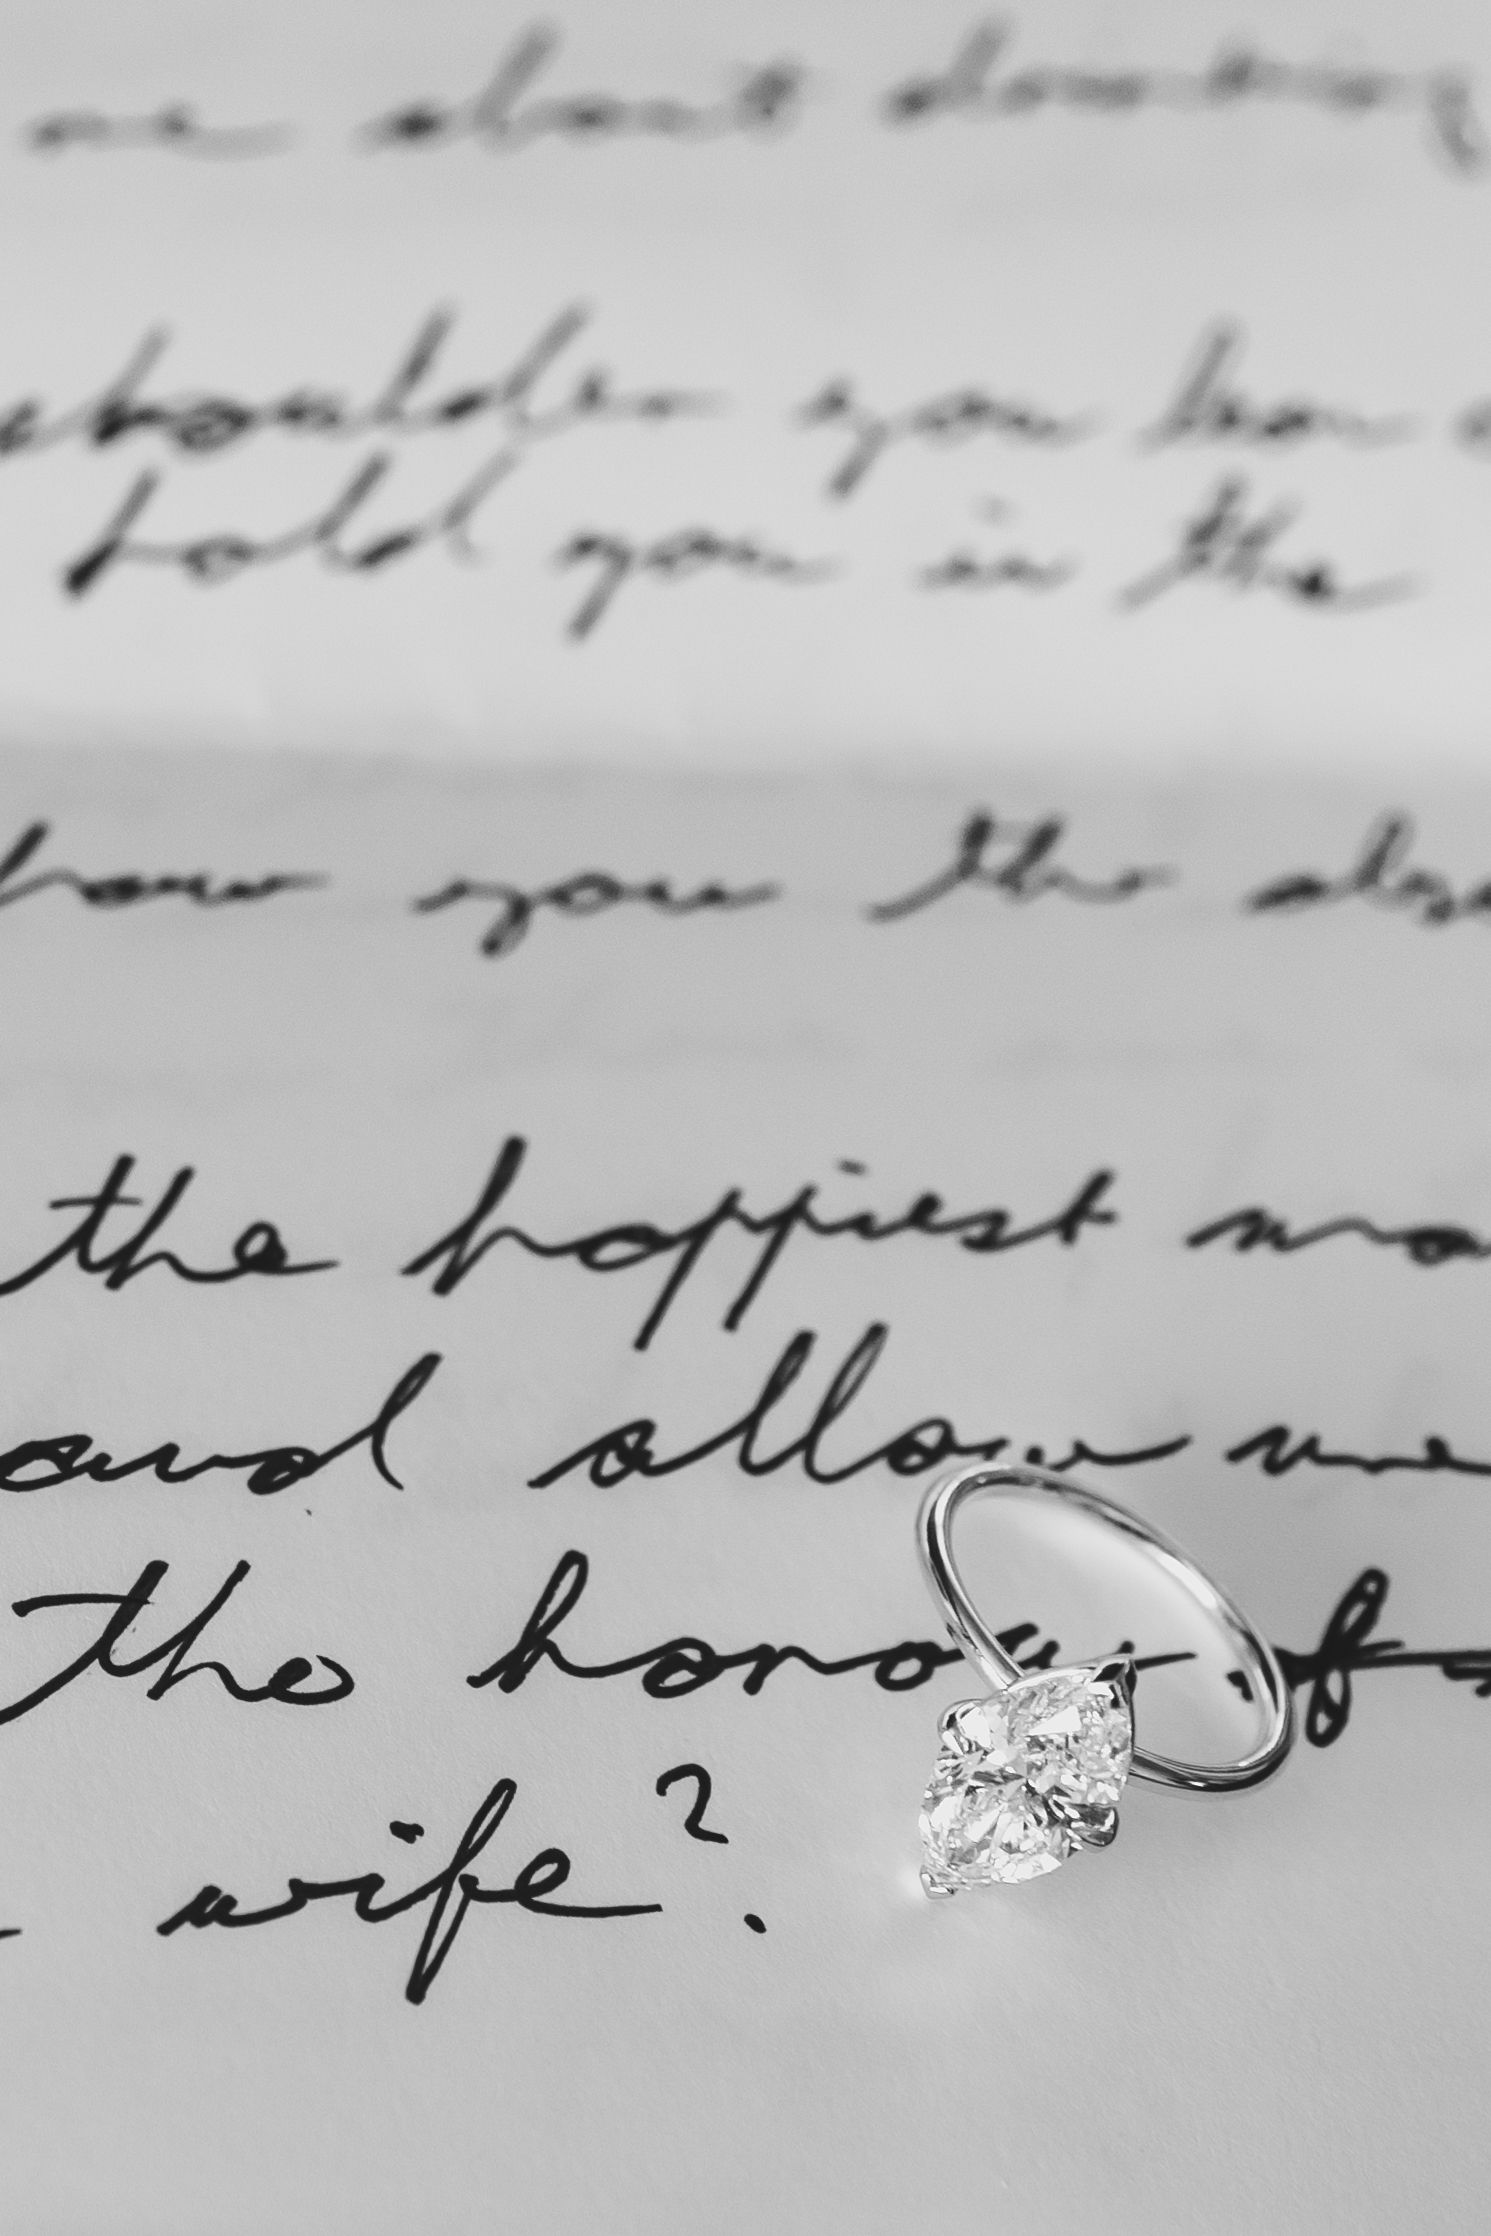 me about dancing
shoulder you
hold you in the
how you the
the happiest
and allow me
the honour of
wife?